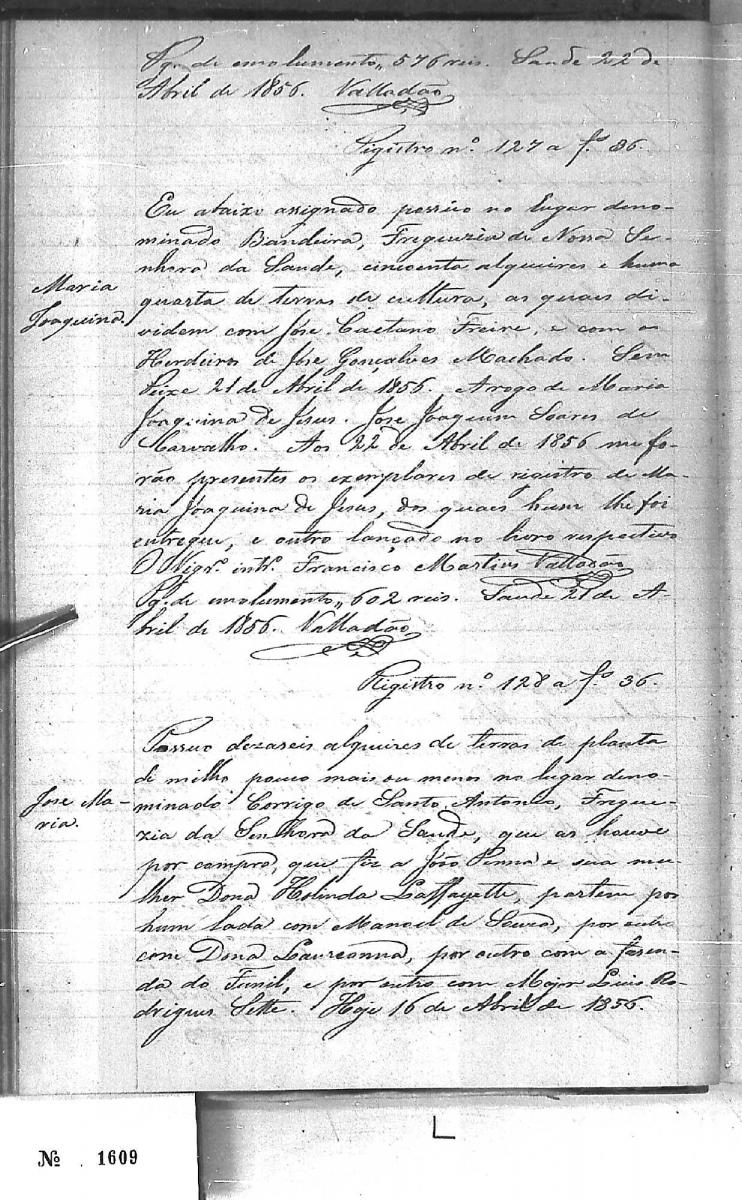 Pg. de emolumento,, 576 reis. Saude 22 de
Abril de 1856. Valladão
Registro nº. 127 a fˢ 36.
Maria
Joaquina.
Eu abaixo assignado possúo no lugar deno-
minado Bandeira, Freguezia de Nossa Se-
nhora da Saude, cincoenta alqueires e huma
quarta de terras de cultura, as quaes di-
videm com José Caetano Freire, e com os
Herdeiros de José Gonçalves Machado. Sem
Peixe 21 de Abril de 1856. Arrogo de Maria
Joaquina de Jesus. José Joaquim Soares de
Carvalho. Aos 22 de Abril de 1856 me fo-
rão presentes os exemplares de registro de Ma-
ria Joaquina de Jesus, dos quaes hum lhe foi
entregue, e outro lançado no livro respectivo
O Vigrº. intrº. Francisco Martins Valladão
Pg. de emolumento,, 602 reis. Saude 21 de A-
bril de 1856. Valladão
Registro nº. 128 a fˢ 36.
Jose Ma-
ria.
Possuo dezaseis alqueires de terras de planta
de milho pouco mais ou menos no lugar deno-
minado Corrigo de Santo Antonio, Fregue-
zia da Senhora da Saude, que as houve
por compra, que fiz a João Penna e sua mu-
lher Dona Laffayette, partem por
hum lado com Manoel de Souza, por outro
com Dona Laureanna, por outro com a fasen-
da do Funil, e por outro com Major Luis Ro-
drigues Sette. Hoje 16 de Abril de 1856.
Nº . 1609